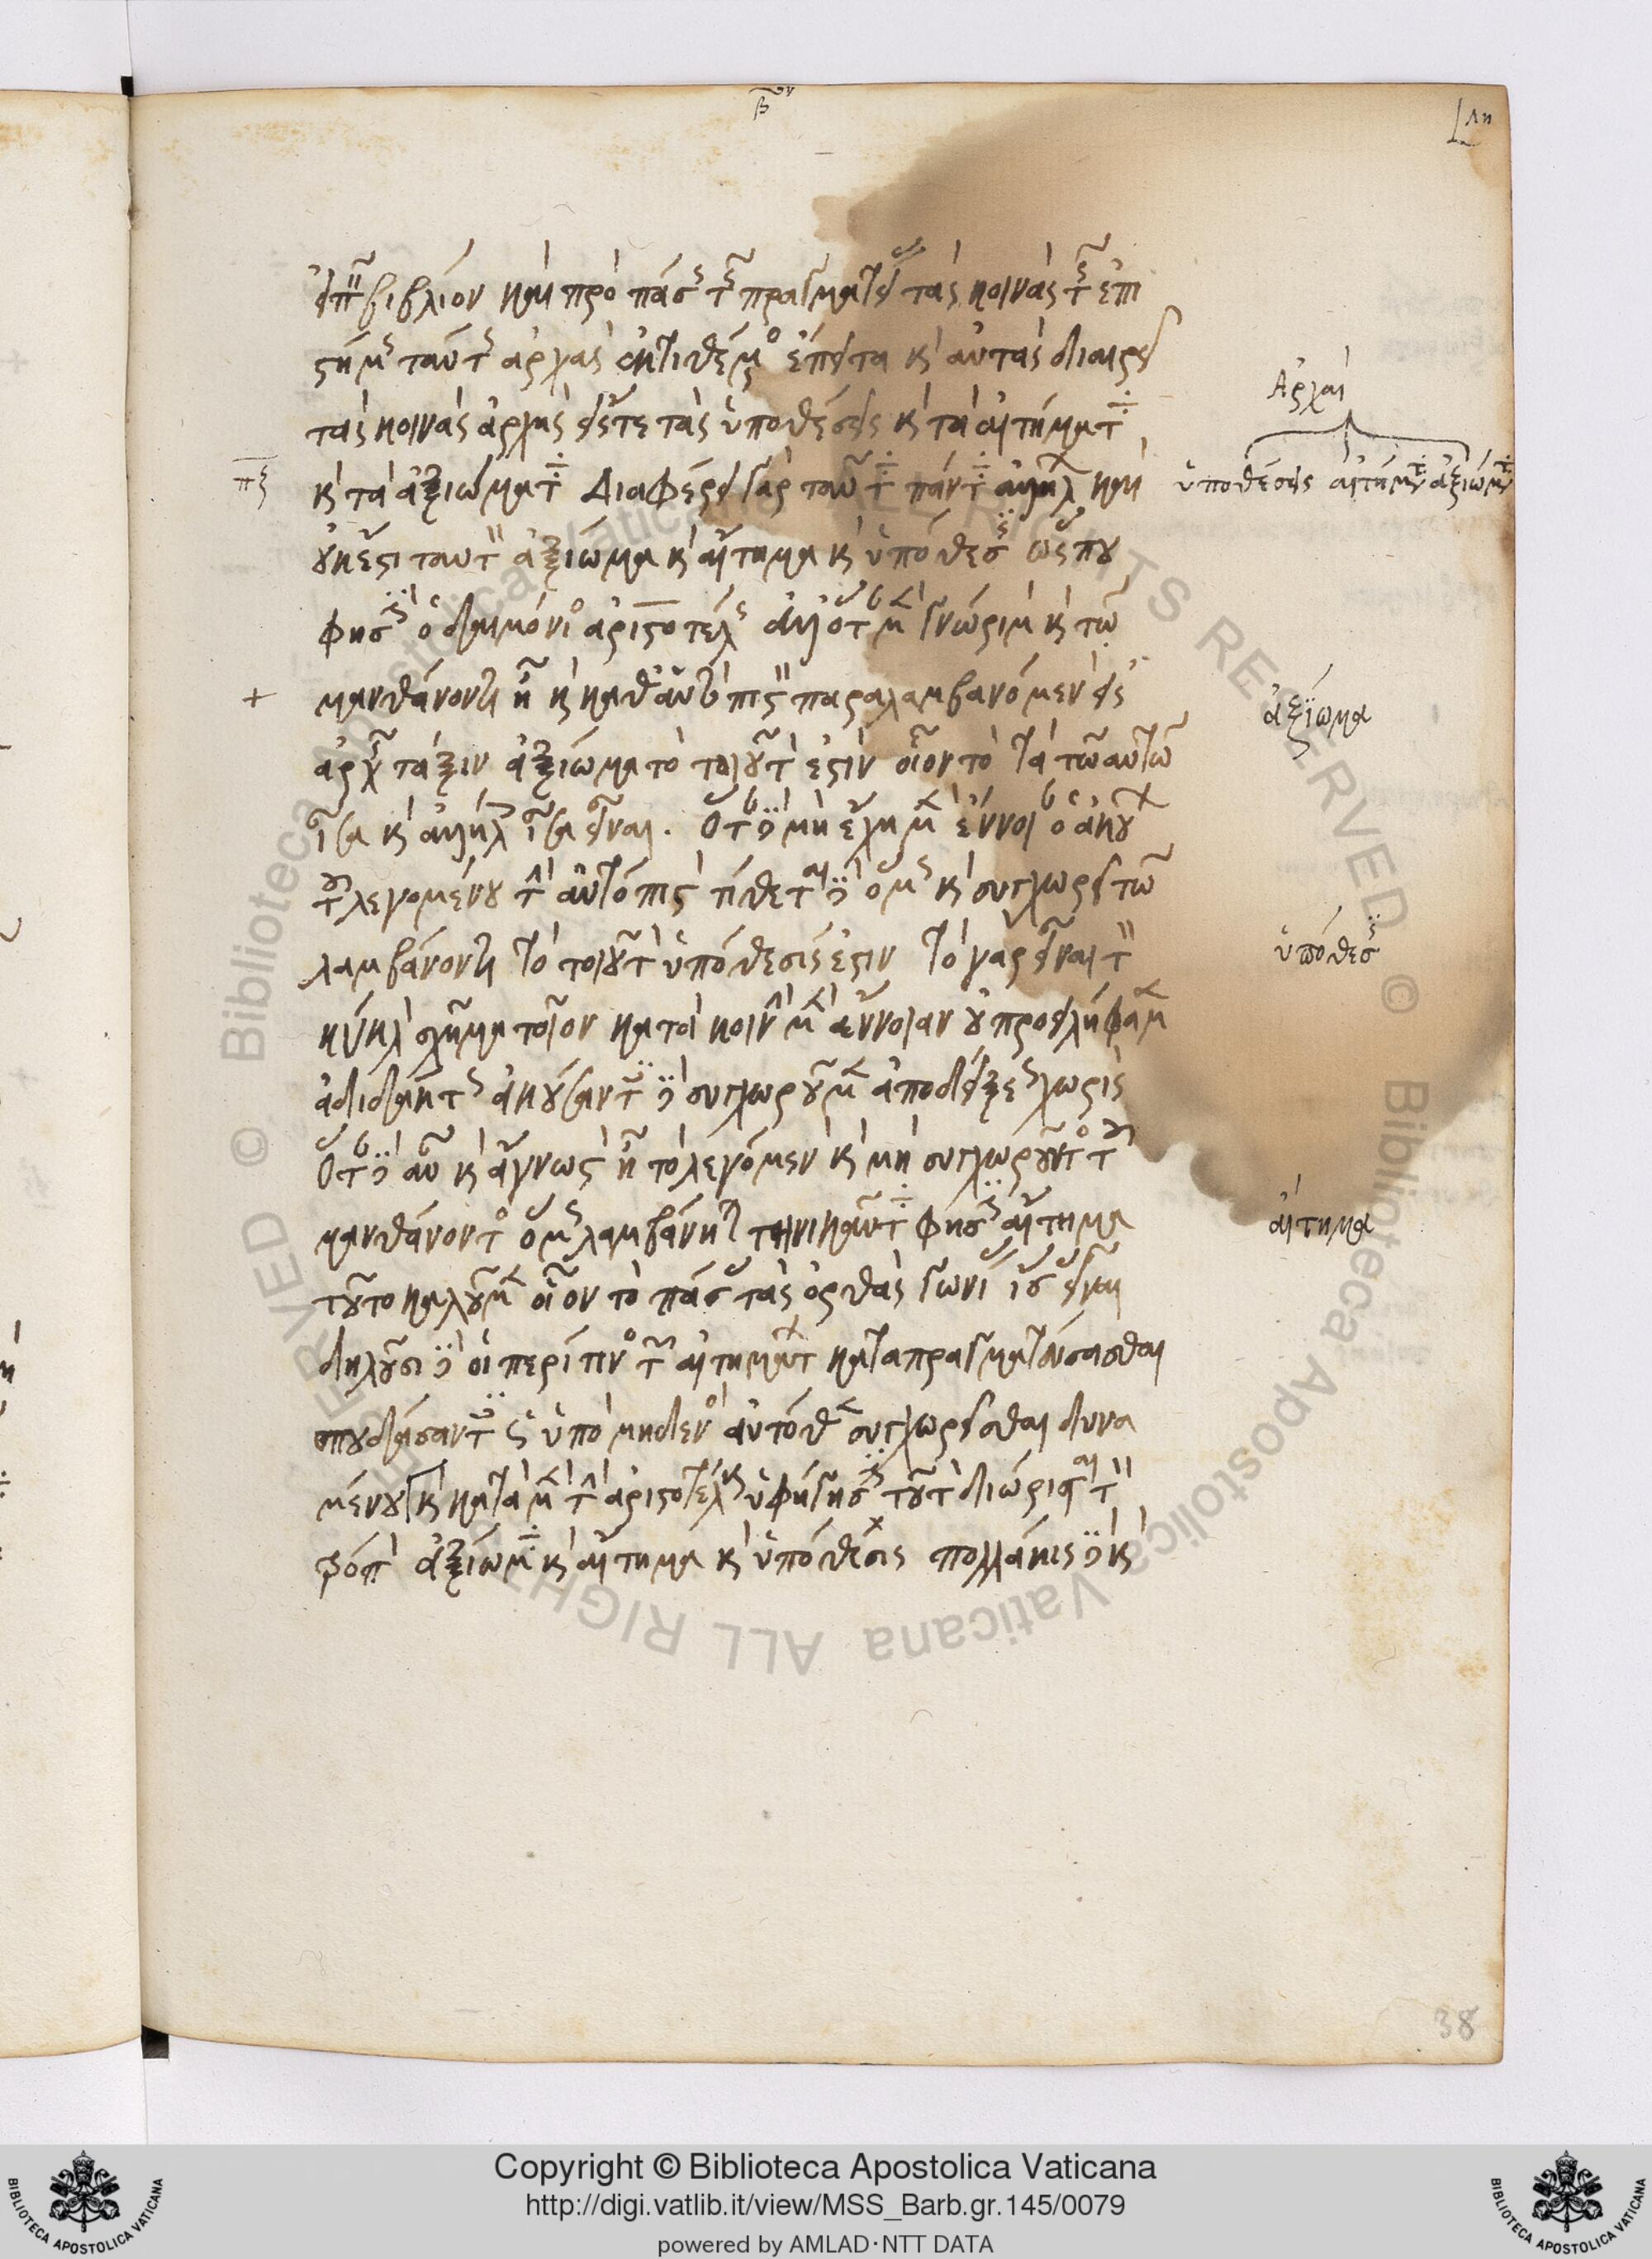 βον
λη
βιβλίον καὶ πρὸ πάσης τῆς πραγματείας τὰς κοινὰς τῆς ἐπι
στήμης ταύτης ἀρχὰς ἐκτιθέμενος ἔπειτα καὶ αὐτὰς διαιρεῖ
τὰς κοινὰς ἀρχὰς εἴς τε τὰς ὑποθέσεις καὶ τὰ αἰτήματα
καὶ τὰ ἀξιώματα διαφέρει γὰρ ταῦτα πάντα ἀλλήλων καὶ
οὐκ ἔστι ταυτὸν ἀξίωμα καὶ αἴτημα καὶ ὑπόθεσις ὥς που
φησὶν ὁ δαιμόνιος ἀριστοτέλης ἀλλ' ὅταν μὲν γνώριμον καὶ τῷ
μανθάνοντι ᾖ καὶ καθ' αὑτὸ πιστὸν παραλαμβανόμενον εἰς
ἀρχῆς τάξιν ἀξίωμα τὸ τοιοῦτόν ἐστιν οἷον τὸ τὰ τῷ αὐτῷ
ἴσα καὶ ἀλλήλοις ἴσα εἶναι. ὅταν δὲ μὴ ἔχῃ μὲν ἔννοιαν ὁ ἀκού
λεγομένου τὴν αὐτόπιστον τίθεται δὲ ὅμως καὶ συγχωρεῖ τῷ
λαμβάνοντι τὸ τοιοῦτον ὑπόθεσίς ἐστιν τὸ γὰρ εἶναι τὸν
κύκλον σχῆμα τοῖον κατὰ κοινὴν μὲν ἔννοιαν οὐ προειλήφαμεν
ἀδιδάκτως ἀκούσαντες δὲ συγχωροῦμεν ἀποδείξεως χωρὶς
ὅταν δὲ αὖ καὶ ἄγνωστον ᾖ τὸ λεγόμενον καὶ μὴ συγχωροῦντος τοῦ
μανθάνοντος ὅμως λαμβάνηται τηνικαῦτα φησὶν αἴτημα
τοῦτο καλοῦμεν οἷον τὸ πάσας τὰς ὀρθὰς γωνίας ἴσας εἶναι
δηλοῦσι δὲ οἱ περί τινος τῶν αἰτημάτων καταπραγματεύσασθαι
σπουδάσαντες ὡς ὑπὸ μηδενὸς αὐτόθεν συγχωρεῖσθαι δυνα
μένου καὶ κατὰ μὲν τὴν ἀριστοτέλους ὑφήγησιν τοῦτον διώρισται τὸν
τρόπον ἀξίωμα καὶ αἴτημα καὶ ὑπόθεσις πολλάκις δὲ καὶ
Ἀρχαί
ὑποθέσεις αἰτήματα ἀξιώματα
ἀξίωμα
ὑπόθεσις
αἴτημα
38
Copyright © Biblioteca Apostolica Vaticana
http://digi.vatlib.it/view/MSS_Barb.gr.145/0079
powered by AMLAD·NTT DATA
BIBLIOTECA APOSTOLICA VATICANA
BIBLIOTECA APOSTOLICA VATICANA
© Biblioteca Apostolica Vaticana ALL RIGHTS RESERVED © Biblioteca Apostolica Vaticana ALL RIGHTS RESERVED